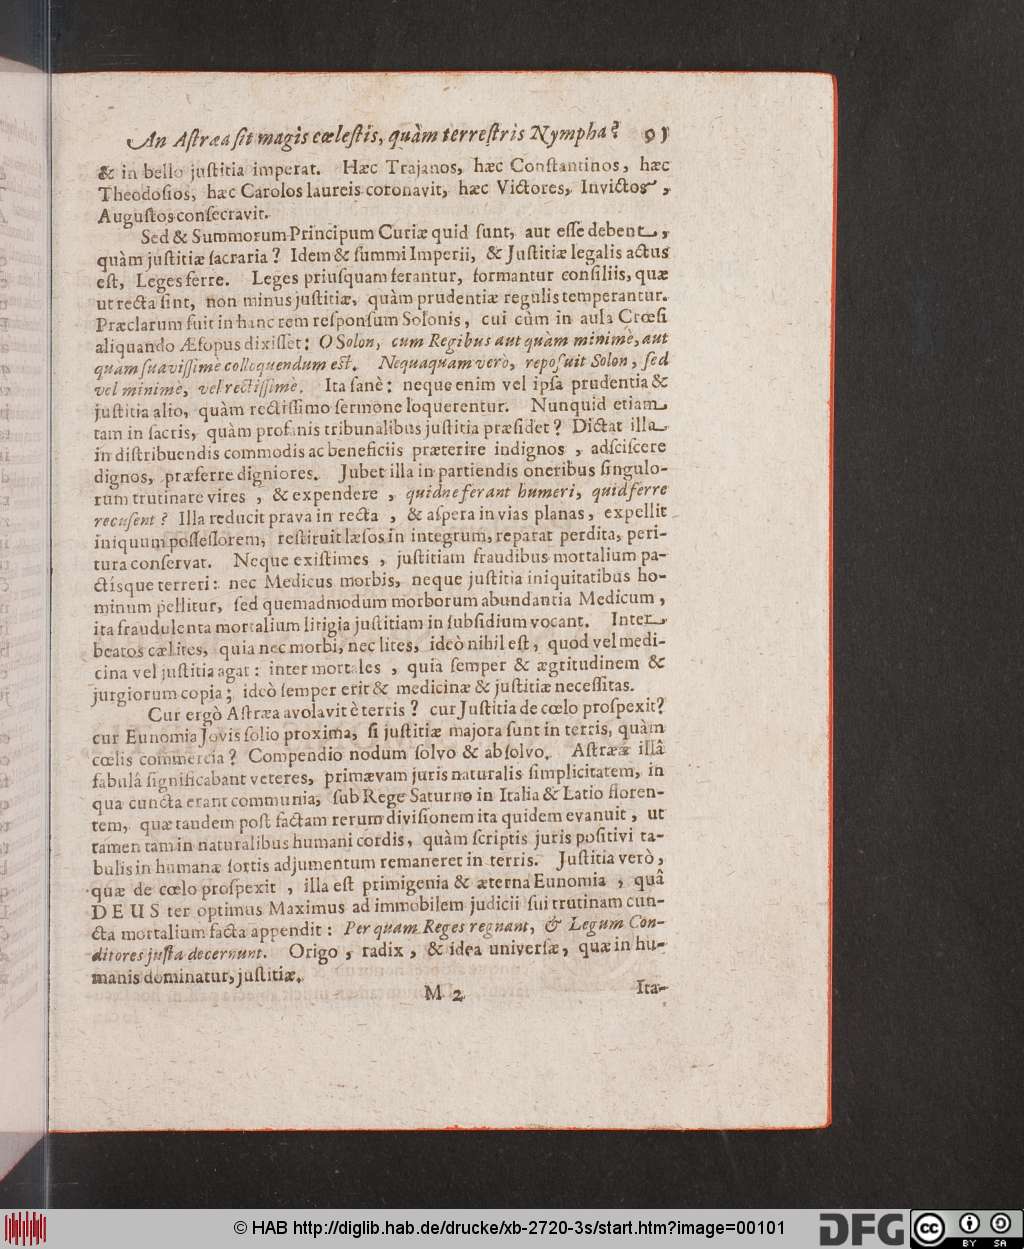 An Astræa sit magis cœlestis, quàm terrestris Nympha? 91
& in bello justitia imperat. Hæc Trajanos, hæc Constantinos, hæc
Theodosios, hæc Carolos laureis coronavit, hæc Victores, Invictos,
Augustos consecravit.
Sed & Summorum Principum Curiæ quid sunt, aut esse debent,
quàm justitiæ sacraria? Idem & summi Imperii, & Justitiæ legalis actus
est, Leges ferre. Leges priusquam ferantur, formantur consiliis, quæ
ut recta sint, non minus justitiæ, quàm prudentiæ regulis temperantur.
Præclarum fuit in hanc rem responsum Solonis, cui cùm in aula Crœsi
aliquando Æsopus dixisset: O Solon, cum Regibus aut quàm minimè, aut
quàm suavissimè colloquendum est. Nequaquam verò, reposuit Solon, sed
vel minimè, vel rectissimè. Ita sanè: neque enim vel ipsa prudentia &
justitia alio, quàm rectissimo sermone loquerentur. Nunquid etiam
tam in sacris, quàm profanis tribunalibus justitia præsidet? Dictat illa
in distribuendis commodis ac beneficiis præterire indignos, adsciscere
dignos, præferre digniores. Jubet illa in partiendis oneribus singulo-
rum trutinare vires, & expendere, quidne ferant humeri, quid ferre
recusent? Illa reducit prava in recta, & aspera in vias planas, expellit
iniquum possessorem, restituit læsos in integrum, reparat perdita, peri-
tura conservat. Neque existimes, justitiam fraudibus mortalium pa-
ctisque terreri: nec Medicus morbis, neque justitia iniquitatibus ho-
minum pellitur, sed quemadmodum morborum abundantia Medicum,
ita fraudulenta mortalium litigia justitiam in subsidium vocant. Inter
beatos cælites, quia nec morbi, nec lites, ideò nihil est, quod vel medi-
cina vel justitia agat: inter mortales, quia semper & ægritudinem &
jurgiorum copia; ideò semper erit & medicinæ & justitiæ necessitas.
Cur ergò Astræa avolavit è terris? cur Justitia de cœlo prospexit?
cur Eunomia Jovis solio proxima, si justitiæ majora sunt in terris, quàm
cœlis commercia? Compendio nodum solvo & absolvo. Astrææ illâ
fabulâ significabant veteres, primævam juris naturalis simplicitatem, in
qua cuncta erant communia, sub Rege Saturno in Italia & Latio floren-
tem, quæ tandem post factam rerum divisionem ita quidem evanuit, ut
tamen tam in naturalibus humani cordis, quàm scriptis juris positivi ta-
bulis in humanæ sortis adjumentum remaneret in terris. Justitia verò,
quæ de cœlo prospexit, illa est primigenia & æterna Eunomia, quâ
DEUS ter optimus Maximus ad immobilem judicii sui trutinam cun-
cta mortalium facta appendit: Per quam Reges regnant, & Legum Con-
ditores justa decernunt. Origo, radix, & idea universæ, quæ in hu-
manis dominatur, justitiæ.
M 2 Ita-
© HAB http://diglib.hab.de/drucke/xb-2720-3s/start.htm?image=00101
DFG
cc BY SA